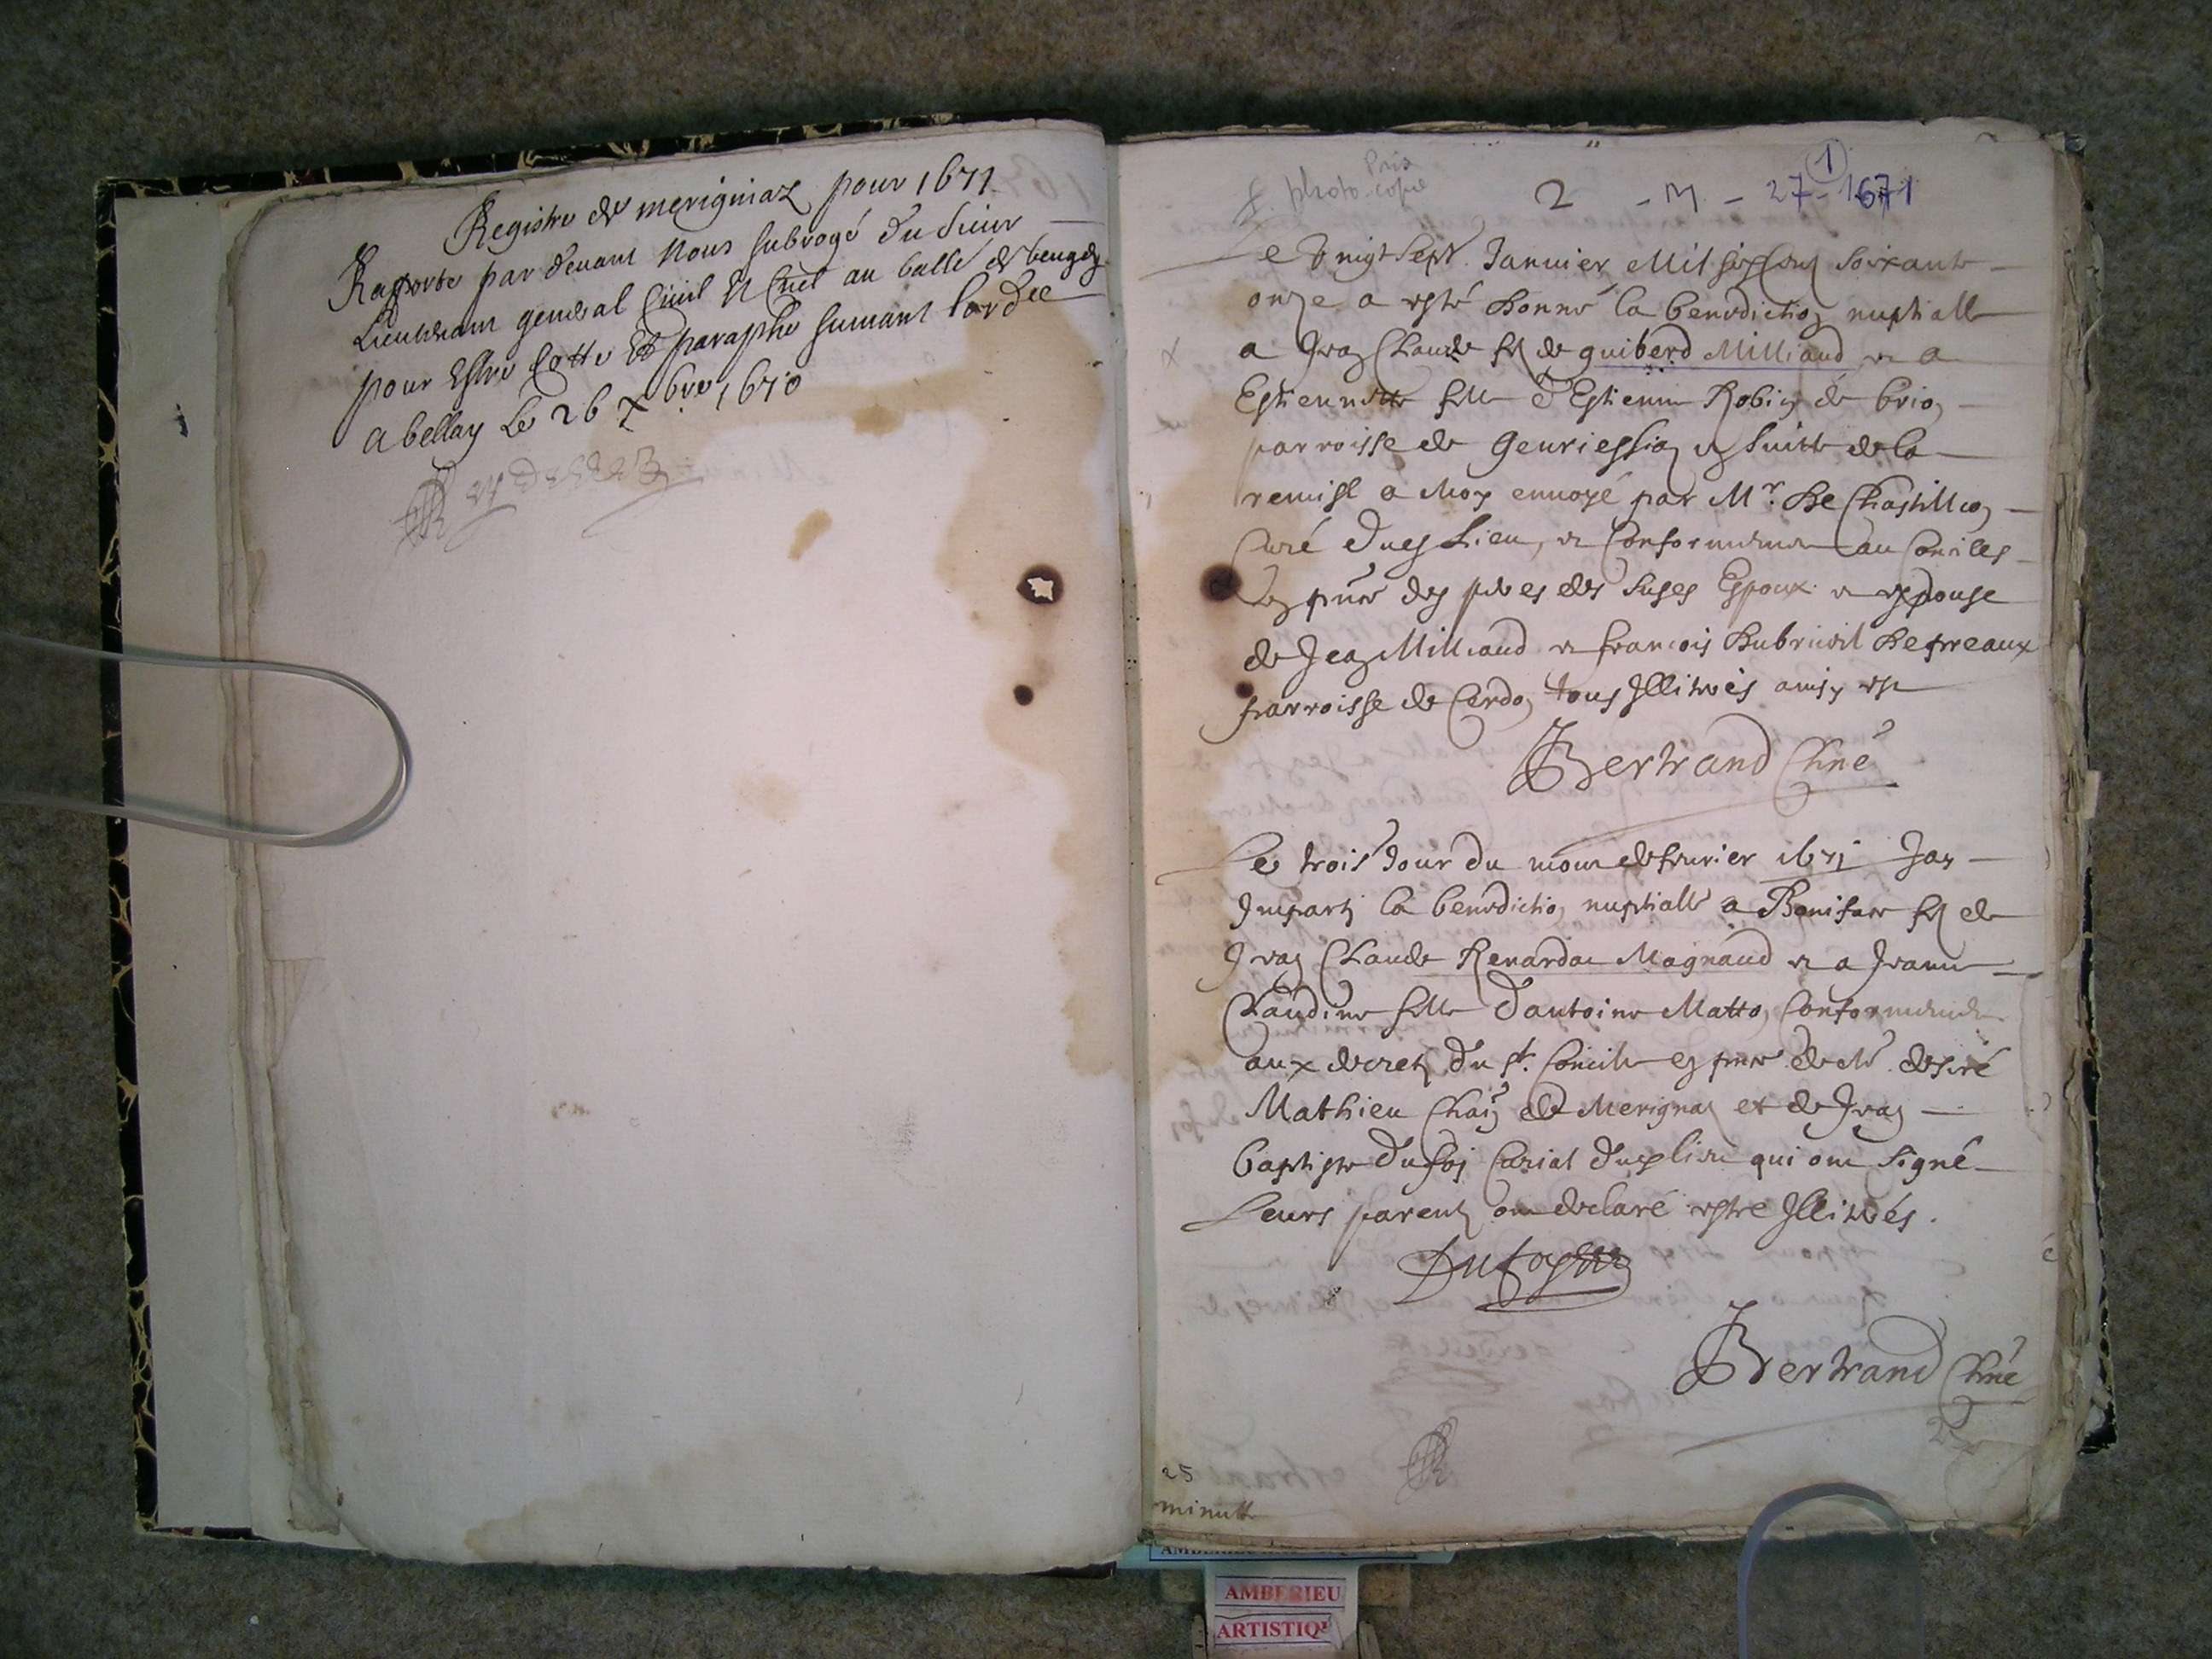 Registre de merigniaz pour 1671
Raporté par devant Nous subrogé du sieur
Lieutenant general Civil Et Cnel au balle de beugey
pour Estre Cotté Et paraphé suivant lordce
a bellay le 26 Xbre 1670
pris
photo-copie
1
2 - M - 27-1-1671
Le vingt sept Januier Mil six Cens soixante
onze a esté donné la benediction nuptialle
a Jean Claude fils de guiberd Milliand et a
Estiennette fille d'Estienne Robin de brion
parroisse de Geuriession en suitte de la
remise a Moy enuoyé par Mr. De Chastillion
Curé dues Lieu, et Conformement au Conciles
En pnce des peres des suses Espoux et espouse
de Jean Milliand et francois Dubrueil De preaux
parroisse de Cerdon tous Illiterés ainsy est
Bertrand Curé
Le trois Jour du mois de feurier 1671 Jay
Imparty la benediction nuptialle a Boniface fils de
Jean Claude Renardat Magnaud et a Jeanne
Claudine fille d'antoine Matton Conformement
aux decretz du st. Concile en pnce de Me desiré
Mathieu de Merignaz et de Jean
baptiste dufoy Curial dues lieu qui ont signé
Leurs parents ont declaré estre Illiterés.
Dufoy
Bertrand Curé
25
minutte
AMBERIEU
ARTISTIQ